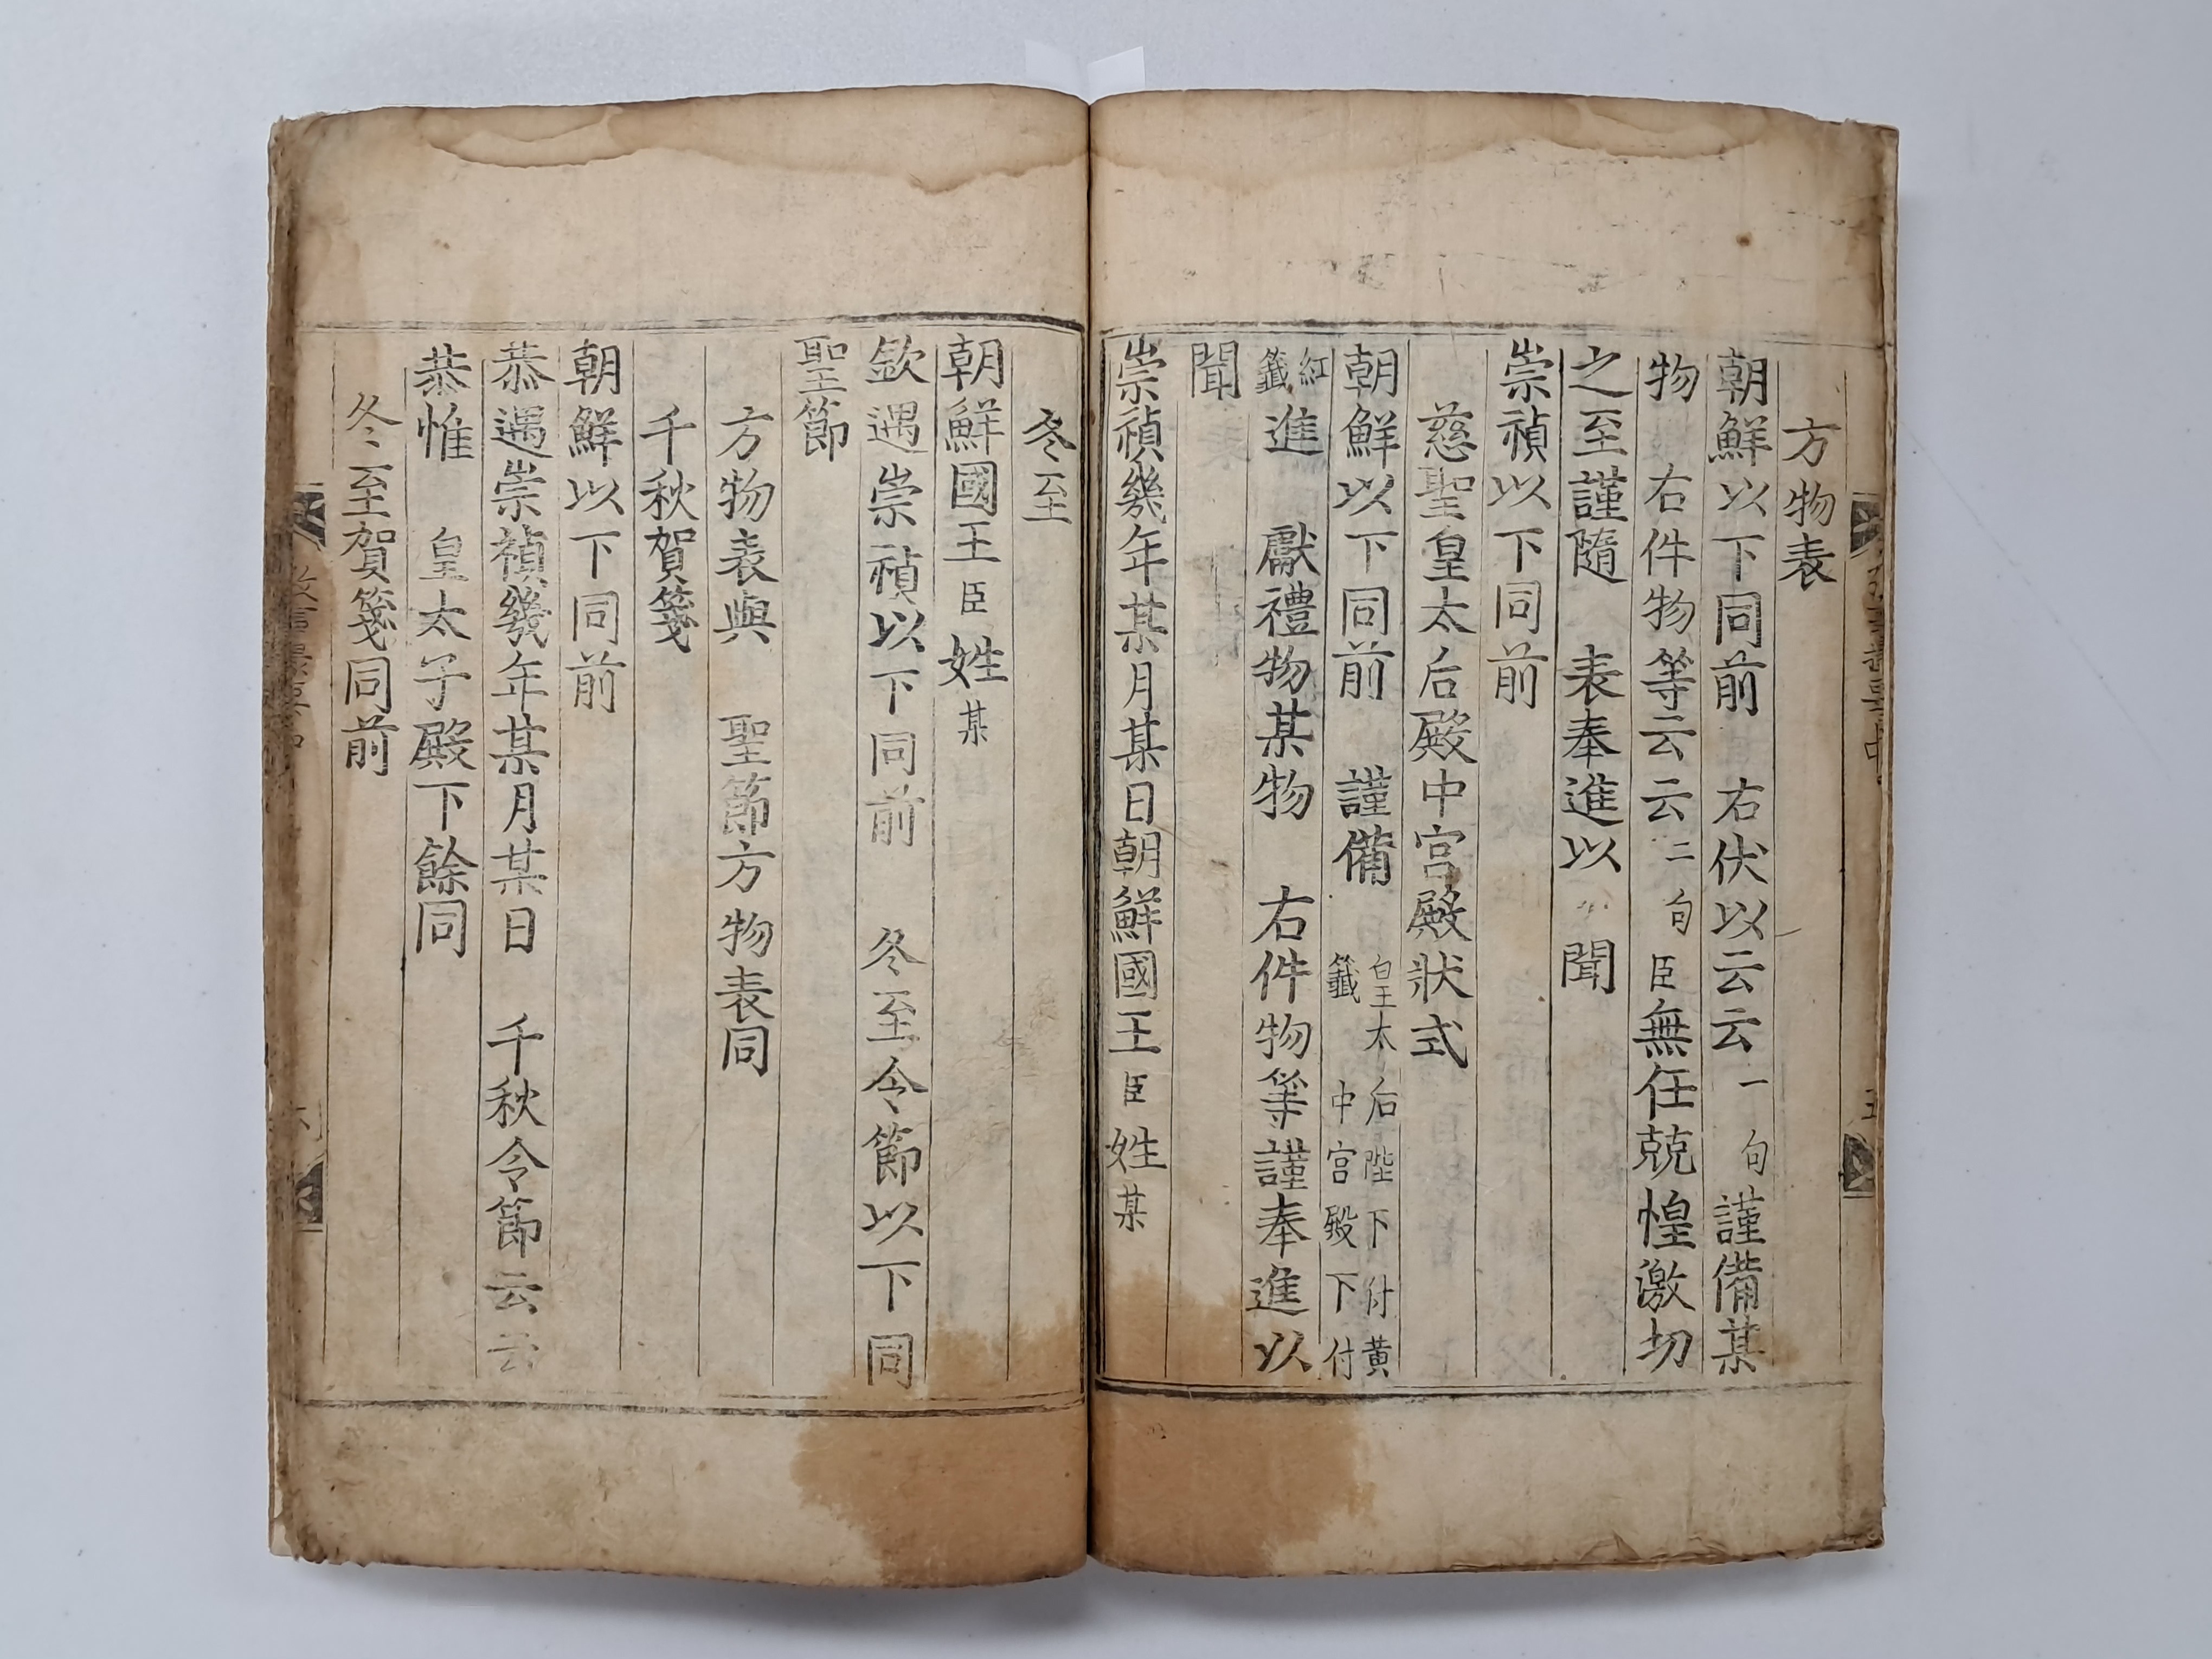 方物表
朝鮮以下同前 右伏以云云一句謹備某
物 右件物等云云二句臣無任兢惶激切
之至謹隨 表奉進以 聞
崇禎以下同前
慈聖皇太后殿中宮殿狀式
朝鮮以下同前 謹備 皇太后陛下付黃籤中宮殿下付
紅籤進 獻禮物某物 右件物等謹奉進以
聞
崇禎幾年某月某日朝鮮國王臣姓某
冬至
朝鮮國王臣姓某
欽遇崇禎以下同前 冬至令節以下同
聖節
方物表與 聖節方物表同
千秋賀箋
朝鮮以下同前
恭遇崇禎幾年某月某日 千秋令節云云
恭惟 皇太子殿下餘同
冬至賀箋同前